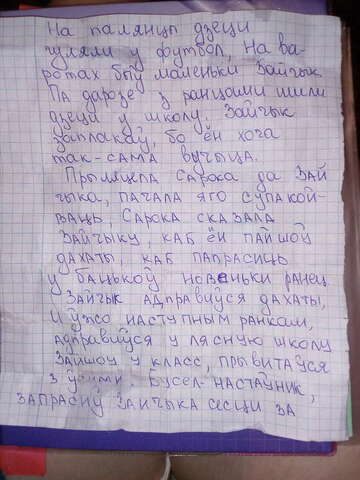 На палянцы дзеци
гуляли у футбол, На ва-
ротах быў маленьки Зайчык
Па дарозе з ранцами шли
дзеци у школу. Зайчык
заплакаў, бо ён хоча
так-сама вучыца.
Прыляцела Сарока да Зай
чыка, пачала яго супакой-
ваць, Сарока сказала
Зайчыку, каб ён пайшоў
дахаты, каб папрасиць
у бацькоў новеньки ранец.
Зайчык адправиўся дахаты,
И ўжо наступным ранкам,
адправиўся у лясную школу
Зайшоу у класс, прывитаўся
з Бусел-настаўник,
запрасиў зайчыка сесци за